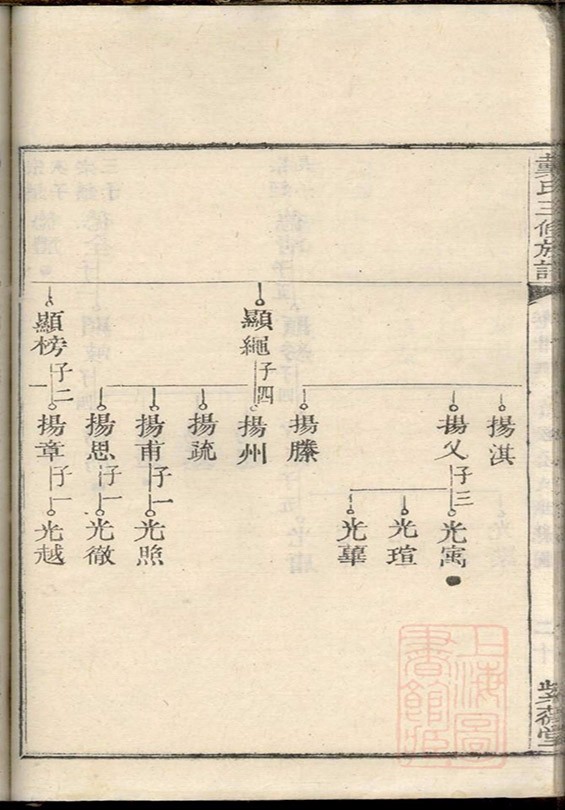 戴氏三修族譜
揚淇
揚父子三
光寓
光瑄
光華
揚滕
顯繩子四
揚州
揚疏
揚甫子一
光照
揚思子一
光徹
顯榜子二
揚章子一
光越
紫蘐堂
上海圖書館藏